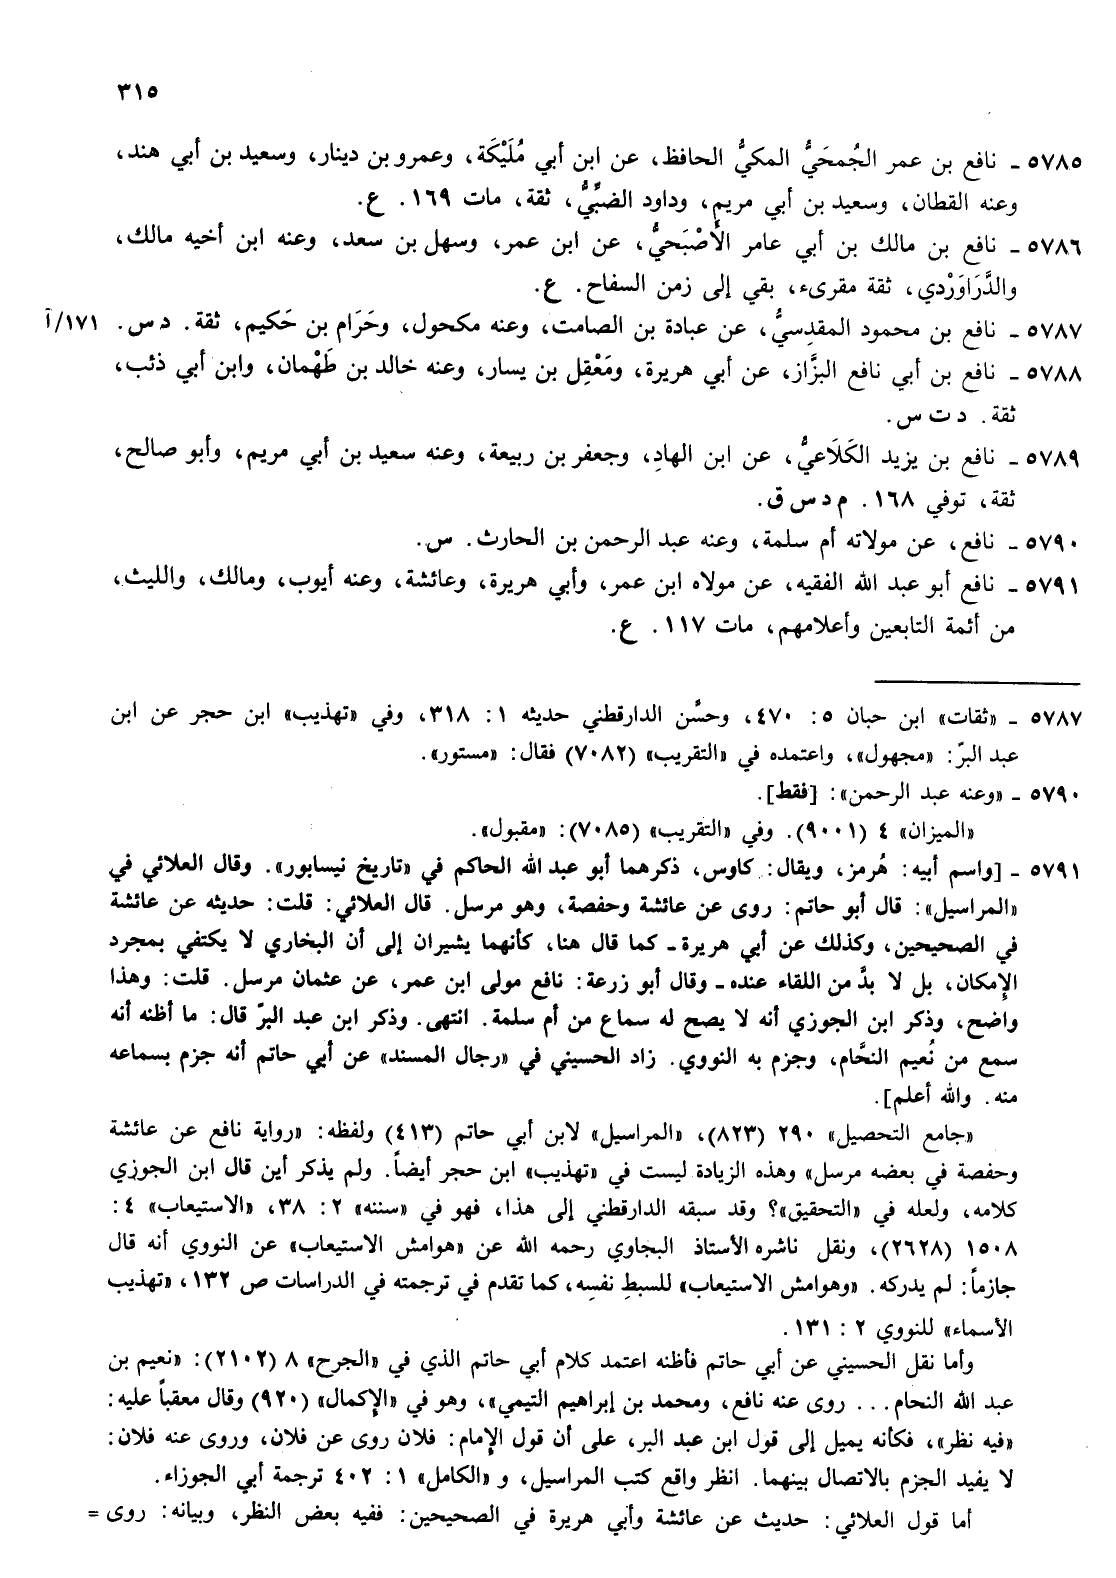 ٣١٥
٥٧٨٥ ـ نافع بن عمر الجُمحَيُّ المكيُّ الحافظ، عن ابن أبي مُلَيْكَة، وعمرو بن دينار، وسعيد بن أبي هند،
وعنه القطان، وسعيد بن أبي مريم، وداود الضبِّيُّ، ثقة، مات ١٦٩. ع.
٥٧٨٦ ـ نافع بن مالك بن أبي عامر الأَصْبَحيُّ، عن ابن عمر، وسهل بن سعد، وعنه ابن أخيه مالك،
والدَّرَاوَرْدي، ثقة مقرىء، بقي إلى زمن السفاح. ع.
٥٧٨٧ ـ نافع بن محمود المقدِسيُّ، عن عبادة بن الصامت، وعنه مكحول، وحَرَام بن حَكيم، ثقة. د س. ١٧١/آ
٥٧٨٨ ـ نافع بن أبي نافع البزَّاز، عن أبي هريرة، ومَعْقِل بن يسار، وعنه خالد بن طَهْمان، وابن أبي ذئب،
ثقة. د ت س.
٥٧٨٩ ـ نافع بن يزيد الكَلَاعيُّ، عن ابن الهادِ، وجعفر بن ربيعة، وعنه سعيد بن أبي مريم، وأبو صالح،
ثقة، توفي ١٦٨. م د س ق.
٥٧٩٠ ـ نافع، عن مولاته أم سلمة، وعنه عبد الرحمن بن الحارث. س.
٥٧٩١ ـ نافع أبو عبد الله الفقيه، عن مولاه ابن عمر، وأبي هريرة، وعائشة، وعنه أيوب، ومالك، والليث،
من أئمة التابعين وأعلامهم، مات ١١٧. ع.
٥٧٨٧ ـ «ثقات» ابن حبان ٥: ٤٧٠، وحسَّن الدارقطني حديثه ١: ٣١٨، وفي «تهذيب» ابن حجر عن ابن
عبد البرّ: «مجهول»، واعتمده في «التقريب» (٧٠٨٢) فقال: «مستور».
٥٧٩٠ ـ «وعنه عبد الرحمن»: [فقط].
«الميزان» ٤ (٩٠٠١). وفي «التقريب» (٧٠٨٥): «مقبول».
٥٧٩١ ـ [واسم أبيه: هُرمز، ويقال: كاوس، ذكرهما أبو عبد الله الحاكم في «تاريخ نيسابور». وقال العلائي في
«المراسيل»: قال أبو حاتم: روى عن عائشة وحفصة، وهو مرسل. قال العلائي: قلت: حديثه عن عائشة
في الصحيحين، وكذلك عن أبي هريرة ـ كما قال هنا، كأنهما يشيران إلى أن البخاري لا يكتفي بمجرد
الإمكان، بل لا بدَّ من اللقاء عنده ـ وقال أبو زرعة: نافع مولى ابن عمر، عن عثمان مرسل. قلت: وهذا
واضح، وذكر ابن الجوزي أنه لا يصح له سماع من أم سلمة. انتهى. وذكر ابن عبد البرّ قال: ما أظنه أنه
سمع من نُعيم النحَّام، وجزم به النووي. زاد الحسيني في «رجال المسند» عن أبي حاتم أنه جزم بسماعه
منه. والله أعلم].
«جامع التحصيل» ٢٩٠ (٨٢٣)، «المراسيل» لابن أبي حاتم (٤١٣) ولفظه: «رواية نافع عن عائشة
وحفصة في بعضه مرسل» وهذه الزيادة ليست في «تهذيب» ابن حجر أيضاً. ولم يذكر أين قال ابن الجوزي
كلامه، ولعله في «التحقيق»؟ وقد سبقه الدارقطني إلى هذا، فهو في «سننه» ٢: ٣٨، «الاستيعاب» ٤:
١٥٠٨ (٢٦٢٨)، ونقل ناشره الأستاذ البجاوي رحمه الله عن «هوامش الاستيعاب» عن النووي أنه قال
جازماً: لم يدركه. «وهوامش الاستيعاب» للسبطِ نفسِه، كما تقدم في ترجمته في الدراسات ص ١٣٢، «تهذيب
الأسماء» للنووي ٢: ١٣١.
وأما نقل الحسيني عن أبي حاتم فأظنه اعتمد كلام أبي حاتم الذي في «الجرح» ٨ (٢١٠٢): «نعيم بن
عبد الله النحام... روى عنه نافع، ومحمد بن إبراهيم التيمي»، وهو في «الإكمال» (٩٢٠) وقال معقباً عليه:
«فيه نظر»، فكأنه يميل إلى قول ابن عبد البر، على أن قول الإمام: فلان روى عن فلان، وروى عنه فلان:
لا يفيد الجزم بالاتصال بينهما. انظر واقع كتب المراسيل، و «الكامل» ١: ٤٠٢ ترجمة أبي الجوزاء.
أما قول العلائي: حديث عن عائشة وأبي هريرة في الصحيحين: ففيه بعض النظر، وبيانه: روى =